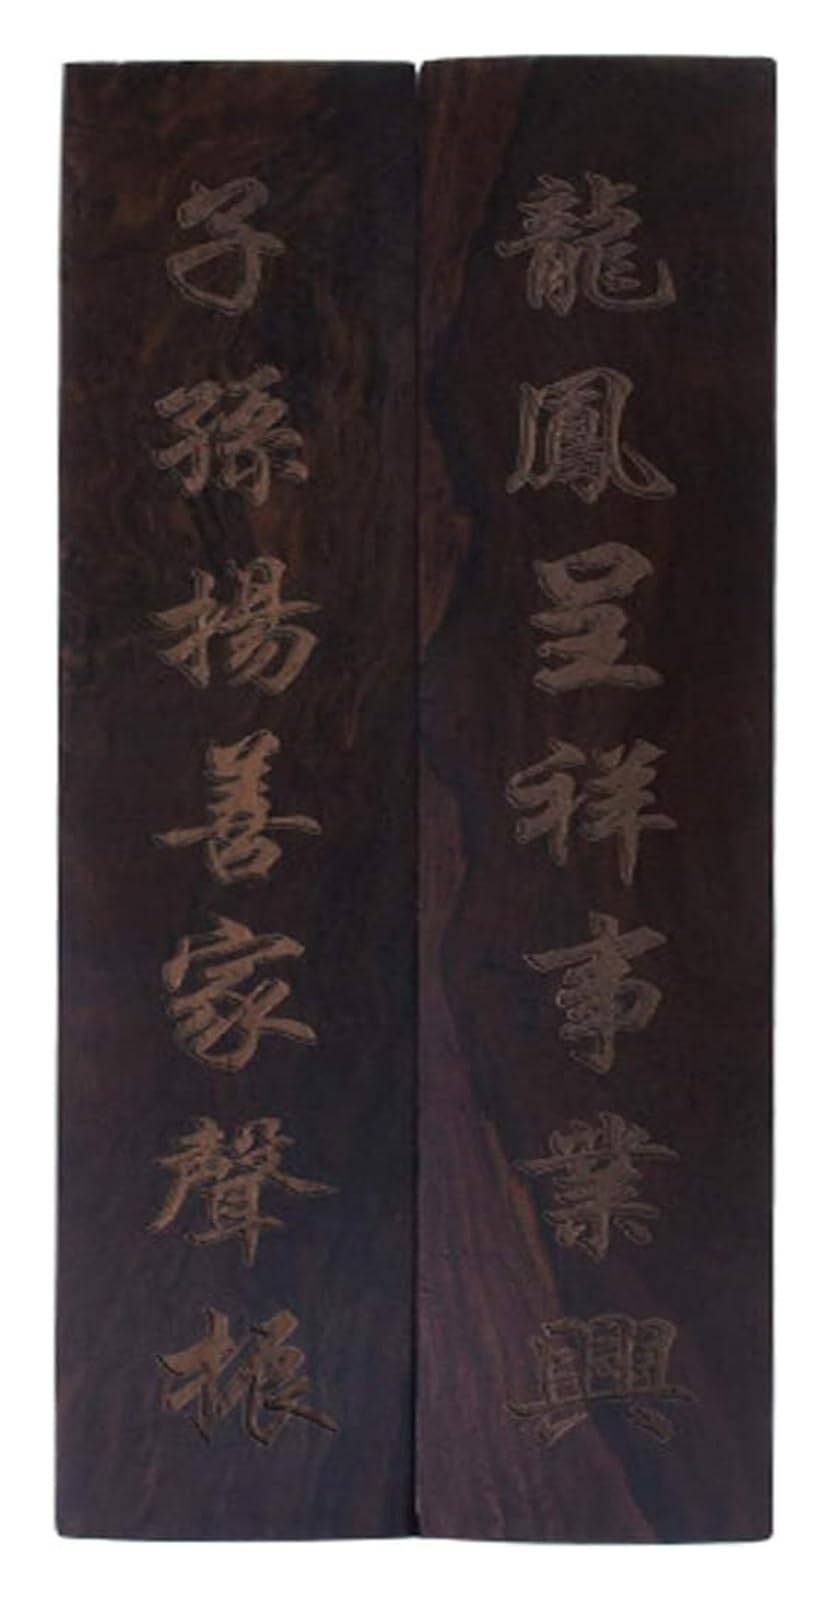 龍鳳呈祥事業興
子孫揚善家聲振